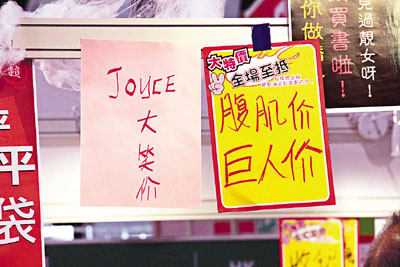 JOYCE
大
笑
价
大特價
全場至抵
腹肌价
巨人价
你做
買書啦！
見過靚女呀！
平
平
袋